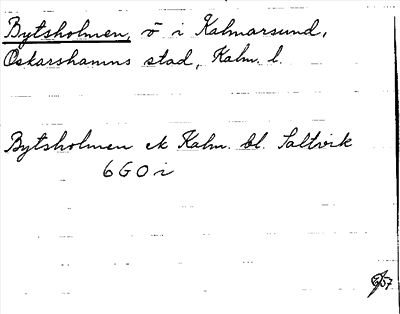 Bytsholmen, ö i Kalmarsund,
Oskarshamns stad, Kalm. l.
Bytsholmen ek Kalm. bl. Saltvik
6 G 0 i